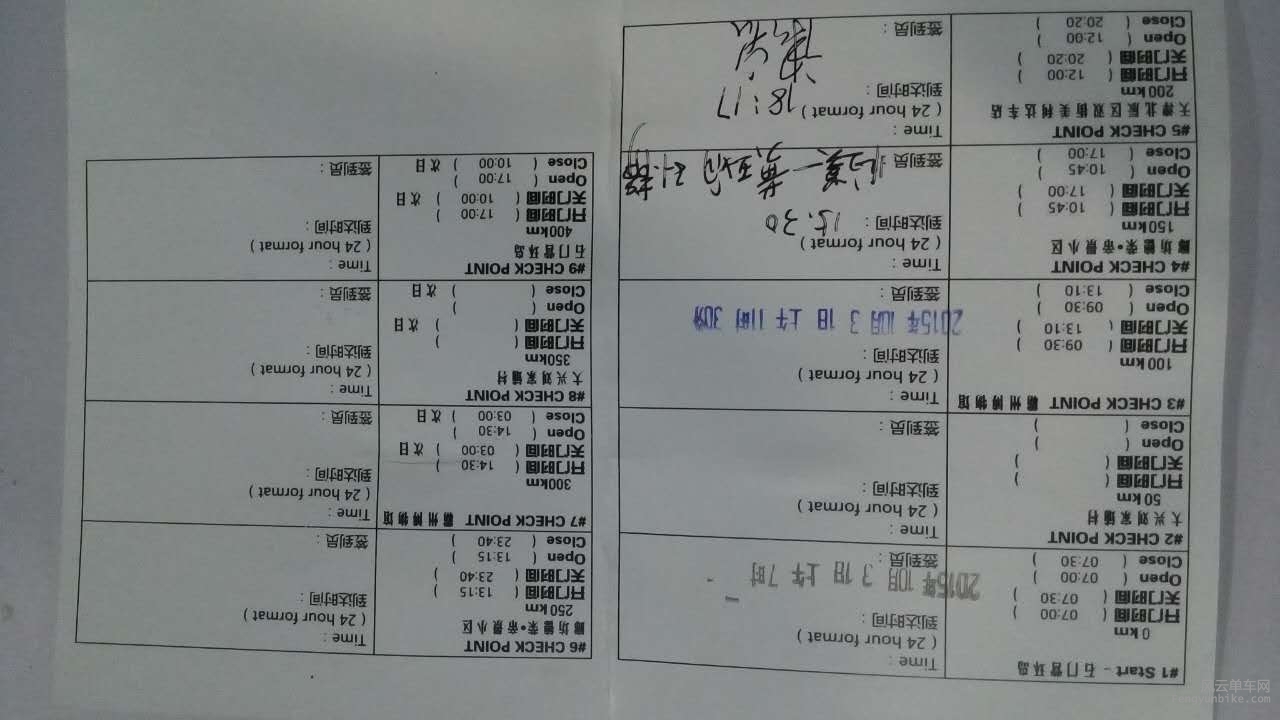 #1 Start - 石门营环岛
0 km
开门时间 ( 07:00 )
关门时间 ( 07:30 )
Open ( 07:00 )
Close ( 07:30 )
Time :
( 24 hour format )
到达时间 :
2015年 10月 3 1日 上午 7时
签到员 :
#2 CHECK POINT
大兴刘家铺村
50 km
开门时间 ( )
关门时间 ( )
Open ( )
Close ( )
Time :
( 24 hour format )
到达时间 :
签到员 :
#3 CHECK POINT 霸州博物馆
100 km
开门时间 ( 09:30 )
关门时间 ( 13:10 )
Open ( 09:30 )
Close ( 13:10 )
Time :
( 24 hour format )
到达时间 :
2015年 10月 3 1日 上午 11时 30分
签到员 :
#4 CHECK POINT
廊坊 •帝景小区
150km
开门时间 ( 10:45 )
关门时间 ( 17:00 )
Open ( 10:45 )
Close ( 17:00 )
Time :
( 24 hour format )
到达时间 : 15:30
签到员 :
#5 CHECK POINT
天津北辰区双街美利达车店
200 km
开门时间 ( 12:00 )
关门时间 ( 20:20 )
Open ( 12:00 )
Close ( 20:20 )
Time :
( 24 hour format )
到达时间 : 18:17
签到员 :
#6 CHECK POINT
廊坊 •帝景小区
250 km
开门时间 ( 13:15 )
关门时间 ( 23:40 )
Open ( 13:15 )
Close ( 23:40 )
Time :
( 24 hour format )
到达时间 :
签到员 :
#7 CHECK POINT 霸州博物馆
300km
开门时间 ( 14:30 )
关门时间 ( 03:00 ) 次日
Open ( 14:30 )
Close ( 03:00 ) 次日
Time :
( 24 hour format )
到达时间 :
签到员 :
#8 CHECK POINT
大兴刘家铺村
350km
开门时间 ( )
关门时间 ( ) 次日
Open ( )
Close ( ) 次日
Time :
( 24 hour format )
到达时间 :
签到员 :
#9 CHECK POINT
石门营环岛
400km
开门时间 ( 17:00 )
关门时间 ( 10:00 ) 次日
Open ( 17:00 )
Close ( 10:00 ) 次日
Time :
( 24 hour format )
到达时间 :
签到员 :